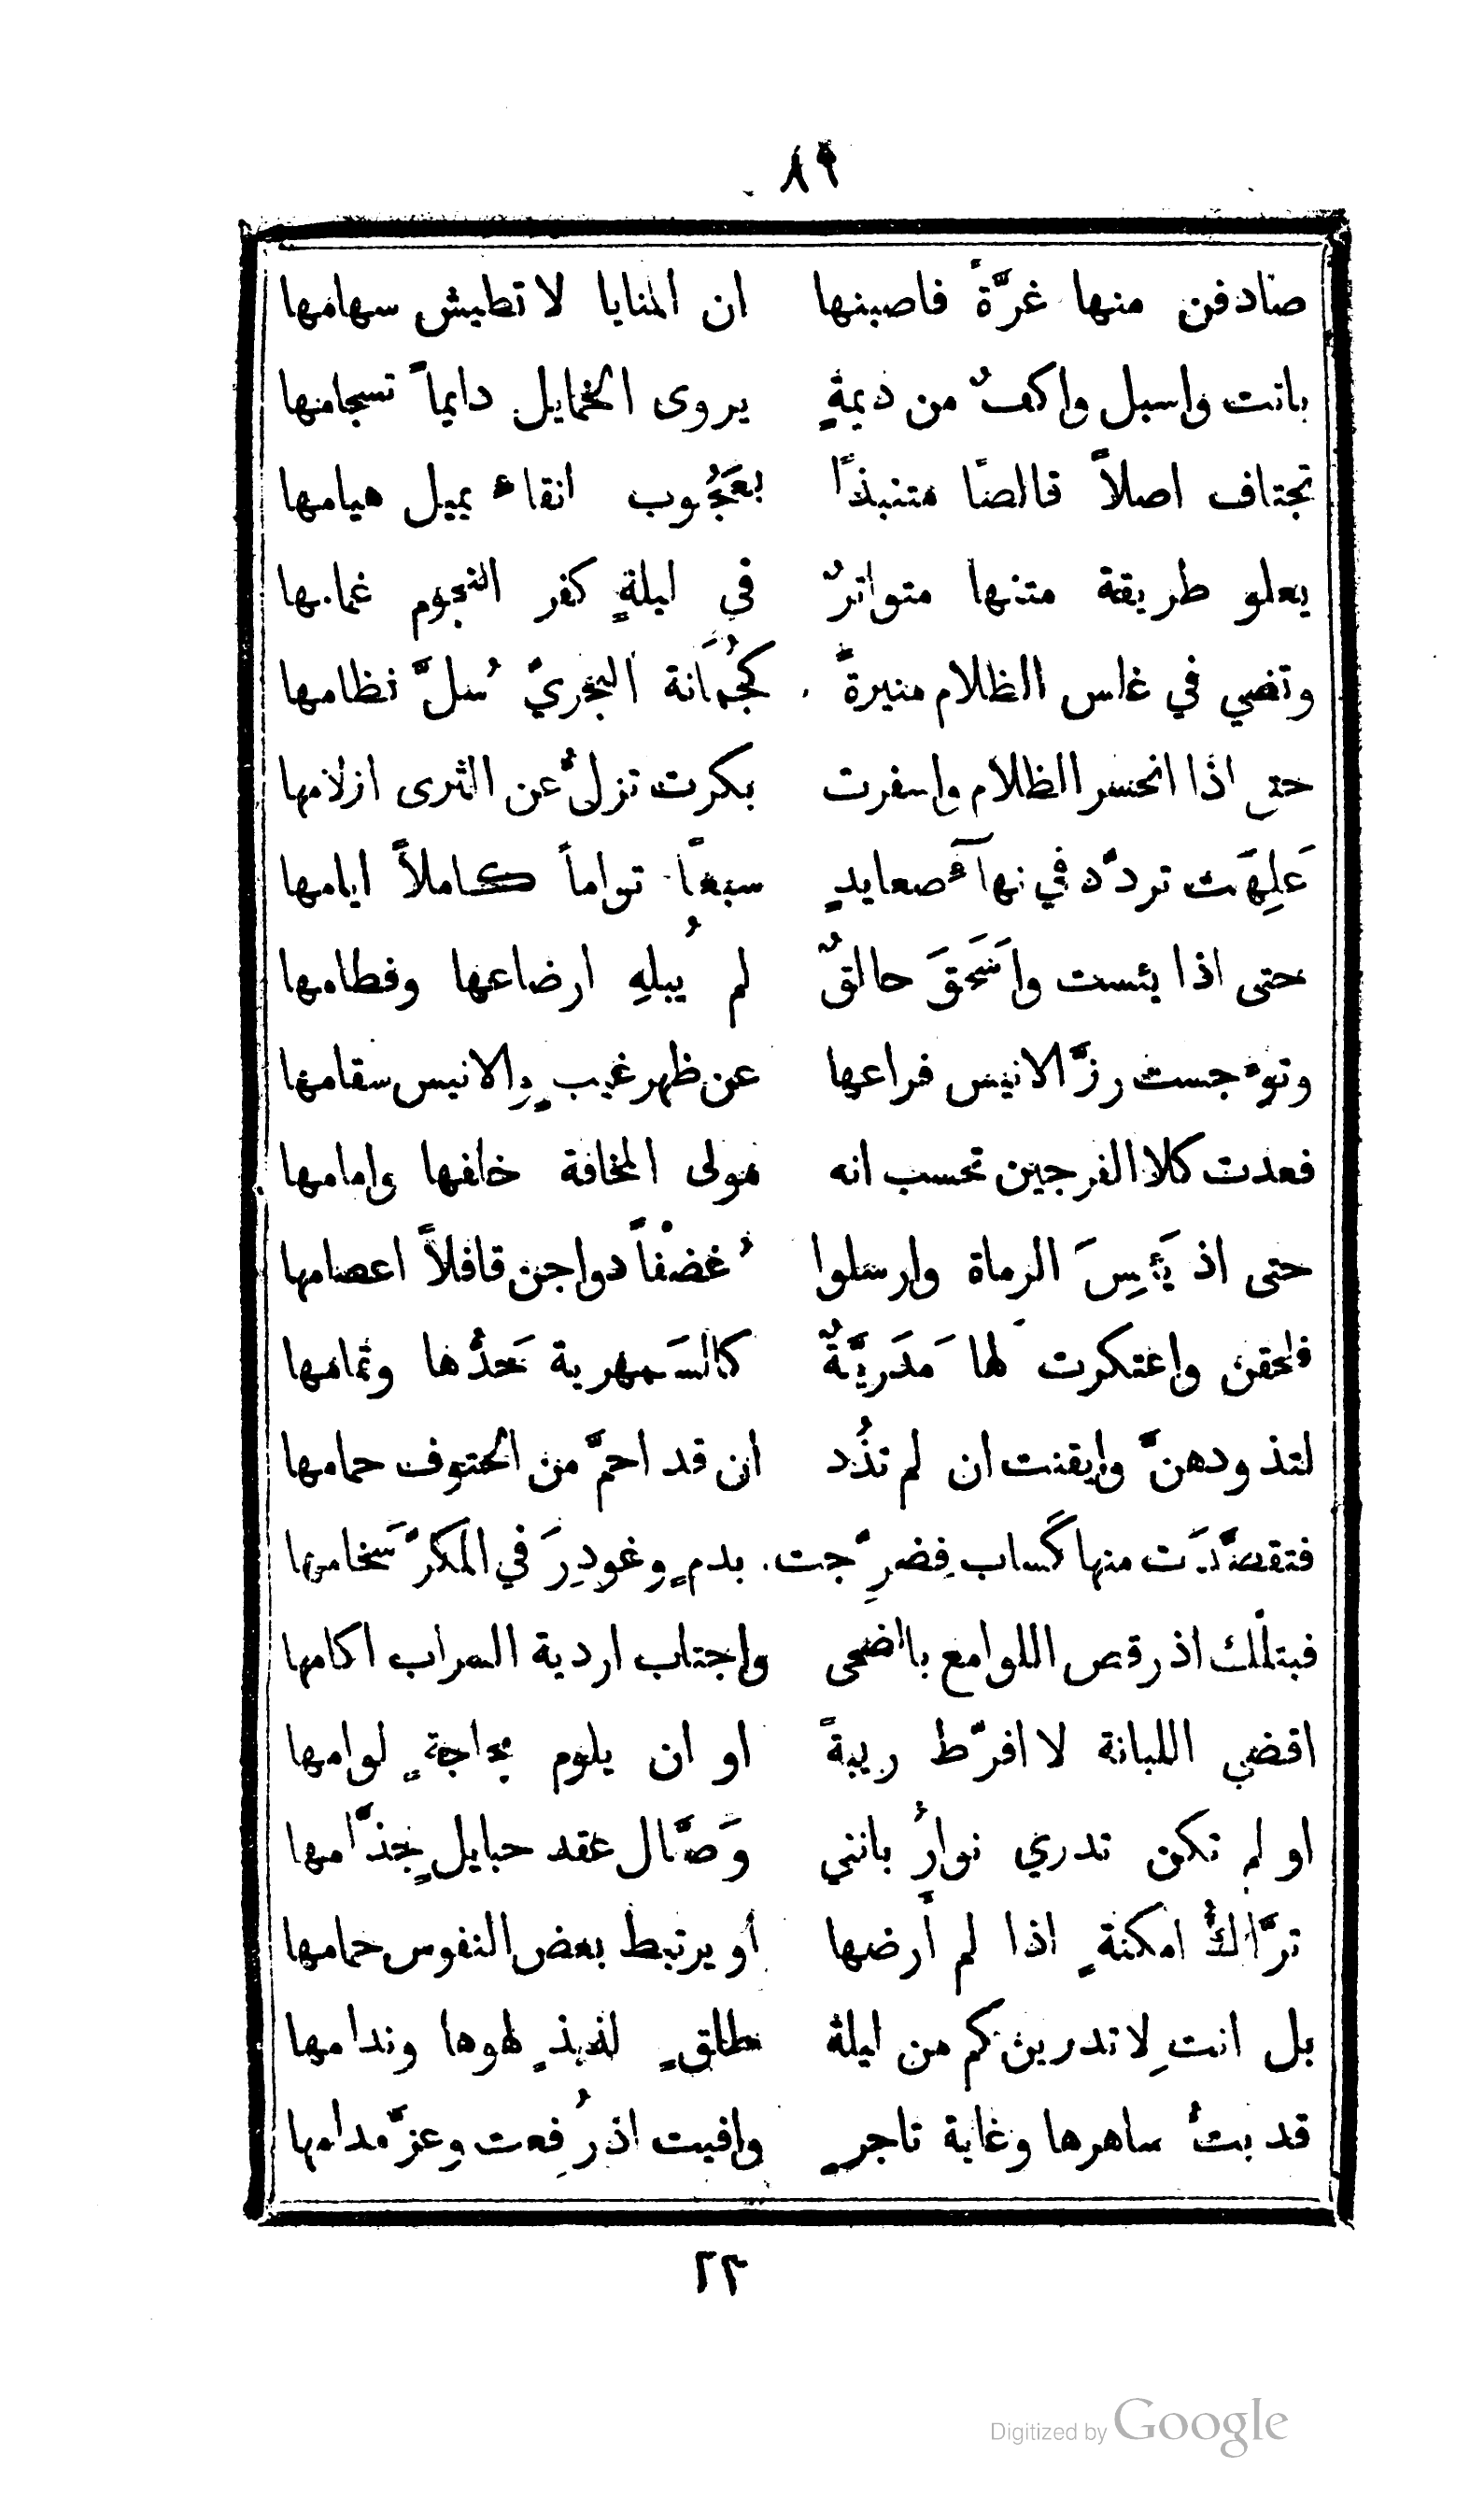 ٨٩
صادفن منها غرَّةً فاصبنها ان المنايا لا تطيش سهامها
باتت واسبل واكفٌ من ديمةٍ يروى الخمايل دايماً تسجامها
تجتاف اصلاً قالصًا متنبذًا بعَجُوب انقاء يميل هيامها
يعلو طريقة متنها متواترٌ في ليلةٍ كفر النجوم غمامها
وتضي في غاس الظلام منيرةً كجُمَانة البحريّ سُلَّ نظامها
حتى اذا انحسر الظلام واسفرت بكرت تزلُّ عن الثرى ازلامها
عَلِهَت تردّد في نهآء صعايدٍ سبعًا تواماً كاملاً ايامها
حتى اذا يئست واَسَحَقَ حالقٌ لم يُبلهِ ارضاعها وفطامها
وتوءجست رزَّ الانيس فراعها عن ظهر غيبٍ والانيس سقامها
فعدت كلا الفرجين تحسب انه مولى المخافة خلفها وامامها
حتى اذ يَئِسَ الرماة وارسلوا غُضفاً دواجن قافلاً اعصامها
فلحقن واعتكرت لها مَدَريَّةٌ كالسَمهرية حَدُّها وتمامها
لتذودهنَّ وايقنت ان لم تذُد ان قد احمَّ من الحتوف حمامها
فتقصَّدَت منها كَساب فضرِّجت بدمٍ وغودِرَ في المكرّ سَخامها
فبتلك اذ رقص اللوامع بالضحى واجتاب اردية السراب اكامها
اقضي اللبانة لا افرّط ريبةً او ان يلوم بحاجةٍ لوامها
او لم تكن تدري نوارُ بانني وَصَّال عقد حبايلٍ جذّامها
ترَّاكُ امكنةٍ اذا لم أرضها أو يرتبط بعض النفوس حمامها
بل انتِ لا تدرين كم من ليلة طلقٍ لذيذٍ لهوها وندامها
قد بتُّ ساهرها وغاية تاجرٍ وافيت اذ رُفعت وعزَّ مدامها
٢٣
Digitized by Google